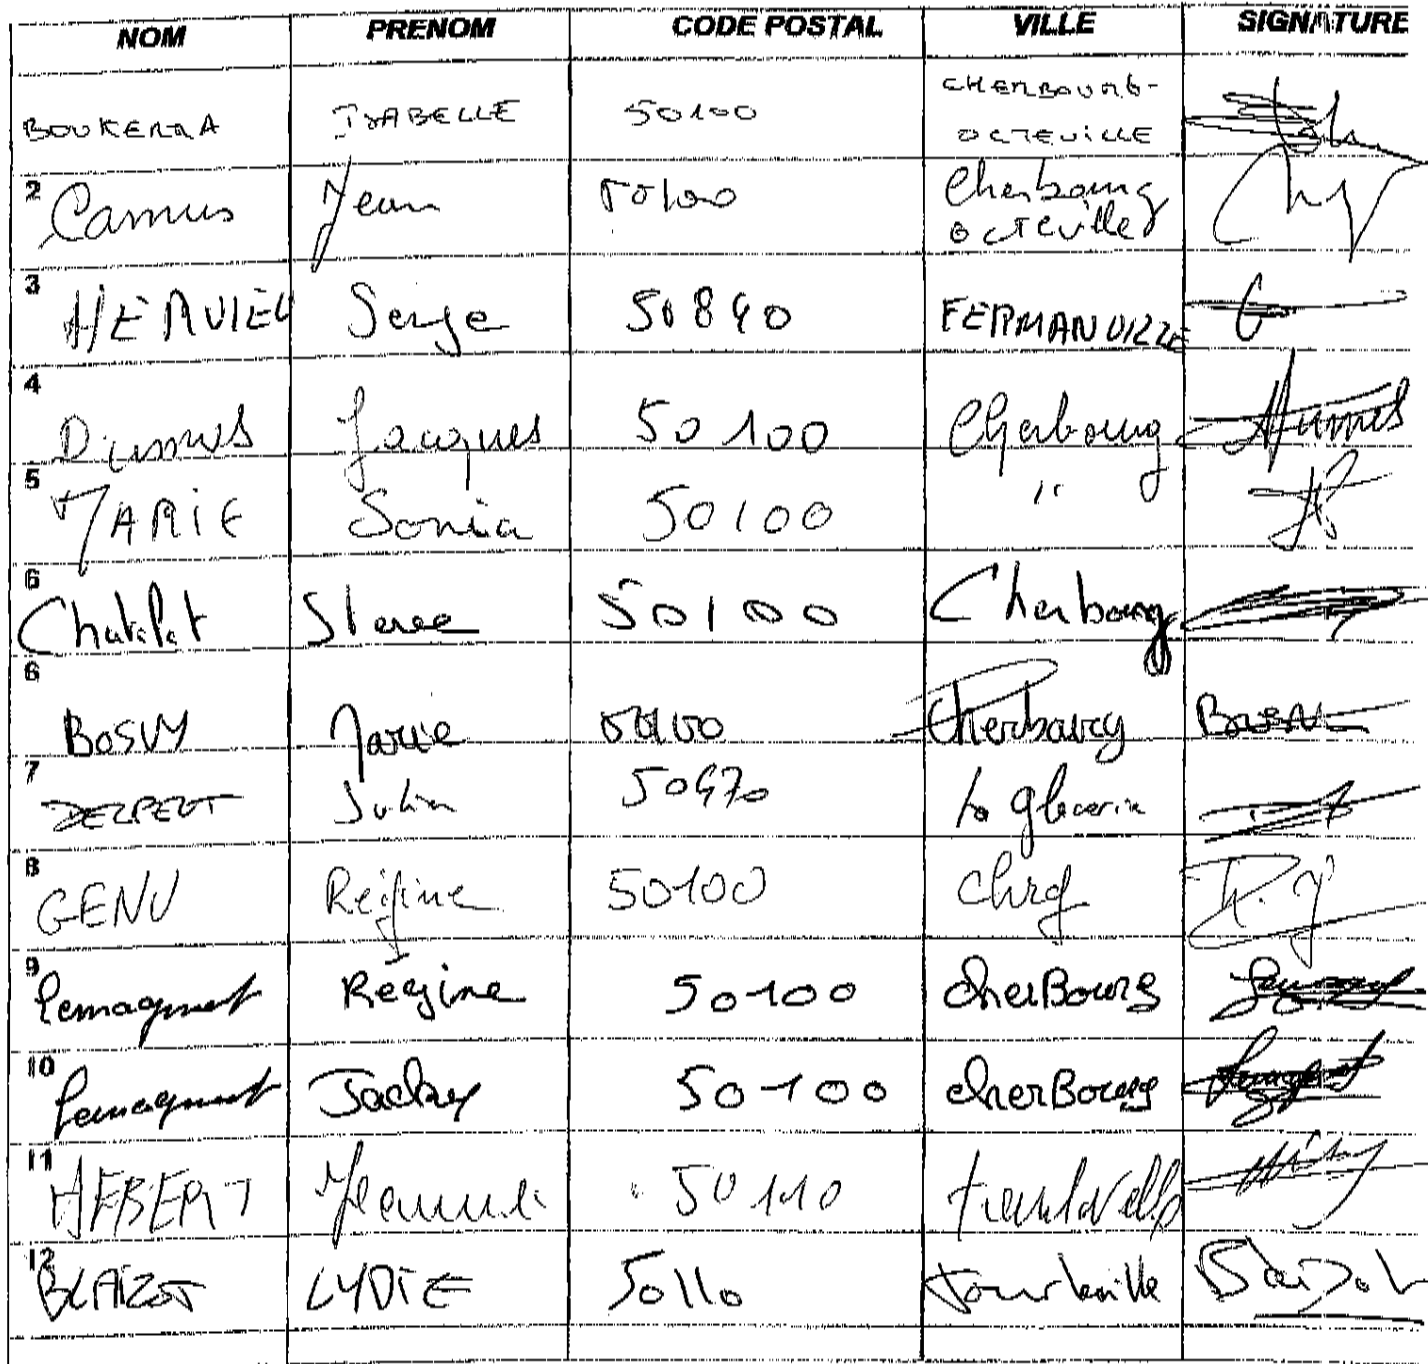 NOM PRENOM CODE POSTAL VILLE SIGNATURE
BOUKERRA ISABELLE 50100 CHERBOURG-
OCTEVILLE
2 Camus Jean 50100 Cherbourg
octeville
3 HERVIEU Serge 50840 FERMANVILLE
4 Dumas Jacques 50100 Cherbourg
5 MARIE Sonia 50100 "
6 Chatelet 50100 Cherbourg
6 BOSVY Marie 50100 Cherbourg
7 DELPERT Julien 50470 la glacerie
8 GENU Régine 50100 Chrg
9 Lemagnent Regine 50100 cherBourg
10 Lemagnent Jacky 50100 cherBourg
11 HEBERT 50110 tourlaville
12 BLAIZOT LYDIE 50110 Tourlaville Blaizot